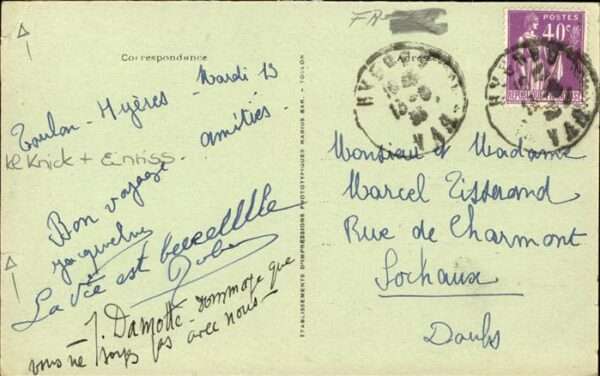 FR
Correspondance
Adresse
POSTES
40c
HYERES
VAR
HYERES
VAR
Mardi 13
Toulon - Hyères -
amitiés -
Bon voyage
Jacqueline
La vie est
J. Damotte - dommage que
vous ne soyez pas avec nous -
ÉTABLISSEMENTS D'IMPRESSIONS PHOTOTYPIQUES MARIUS BAR. - TOULON
Monsieur et Madame
Marcel Tisserand
Rue de Charmont
Sochaux
Doubs